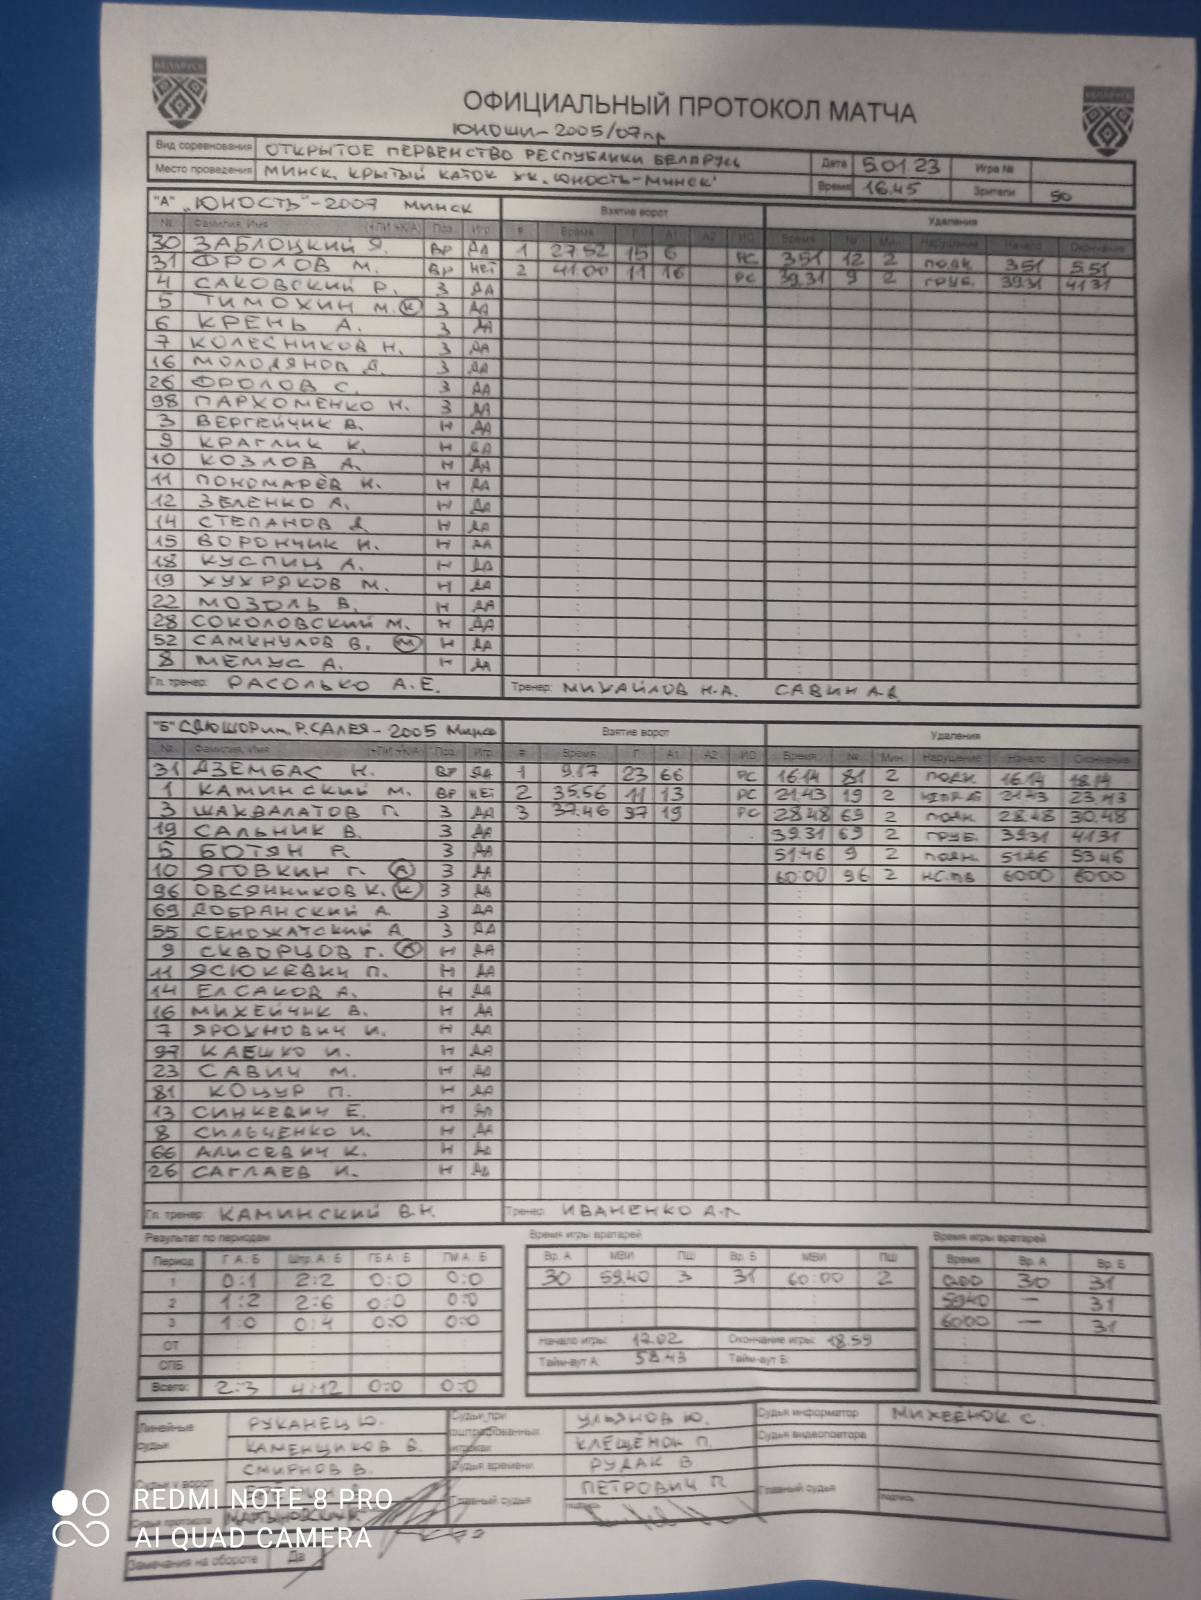 БЕЛАРУСЬ
БЕЛАРУСЬ
ОФИЦИАЛЬНЫЙ ПРОТОКОЛ МАТЧА
ЮНОШИ-2005/07пр
Вид соревнования ОТКРЫТОЕ ПЕРВЕНСТВО РЕСПУБЛИКИ БЕЛАРУСЬ Дата 5.01.23 Игра №
Место проведения МИНСК, КРЫТЫЙ КАТОК ХК "ЮНОСТЬ-МИНСК" Время 16.45 Зрители 50
"А" "ЮНОСТЬ"-2007 МИНСК Взятие ворот Удаления
№ Фамилия, Имя Поз. Игр. # Время Г А1 А2 ИС Время № Мин. Нарушение Начало Окончание
30 ЗАБЛОЦКИЙ Я. ВР ДА 1 27.52 15 6 РС 3.51 12 2 ПОДН. 3.51 5.51
31 ФРОЛОВ М. ВР НЕТ 2 41.00 11 16 РС 39.31 9 2 ГРУБ. 39.31 41.31
4 САКОВСКИЙ Р. З ДА
5 ТИМОХИН М. К З ДА
6 КРЕНЬ А. З ДА
7 КОЛЕСНИКОВ Н. З ДА
16 МОЛОДЯНОВ Д. З ДА
26 ФРОЛОВ С. З ДА
98 ПАРХОМЕНКО Н. З ДА
3 ВЕРГЕЙЧИК В. Н ДА
9 КРАГЛИК К. Н ДА
10 КОЗЛОВ А. Н ДА
11 ПОНОМАРЁВ И. Н ДА
12 ЗЕЛЕНКО А. Н ДА
14 СТЕПАНОВ Д Н ДА
15 ВОРОНЧИК И. Н ДА
18 КУСПИЦ А. Н ДА
19 ХУХРЯКОВ М. Н ДА
22 МОЗОЛЬ В. Н ДА
28 СОКОЛОВСКИЙ М. Н ДА
52 САМКНУЛОВ В. Н ДА
8 МЕМУС А. Н ДА
Гл. тренер: РАСОЛЬКО А.Е. Тренер: МИХАЙЛОВ Н.А. САВИН А.В
"Б" СДЮШОР им. Р. САЛЕЯ - 2005 Минск Взятие ворот Удаления
№ Фамилия, Имя Поз. Игр. # Время Г А1 А2 ИС Время № Мин. Нарушение Начало Окончание
31 ДЗЕМБАС Н. ВР ДА 1 9.17 23 66 РС 16.14 81 2 ПОДН. 16.14 18.14
1 КАМИНСКИЙ М. ВР НЕТ 2 35.56 11 13 РС 21.43 19 2 21.43 23.43
3 ШАХВАЛАТОВ Г. З ДА 3 37.46 97 19 РС 28.48 69 2 ПОДН. 28.48 30.48
19 САЛЬНИК В. З ДА 39.31 69 2 ГРУБ. 39.31 41.31
5 БОТЯН Р. З ДА 51.46 9 2 ПОДН. 51.46 53.46
10 ЯГОВКИН Г. А З ДА 60:00 96 2 НС.ПВ 60.00 60.00
96 ОВСЯННИКОВ К. К З ДА
69 ДОБРАНСКИЙ А. З ДА
55 СЕНОЖАТСКИЙ А З ДА
9 СКВОРЦОВ Г. А Н ДА
11 ЯСЮКЕВИЧ П. Н ДА
14 ЕЛСАКОВ А. Н ДА
16 МИХЕЙЧИК В. Н ДА
7 ЯРОХНОВИЧ И. Н ДА
97 КАЕШКО И. Н ДА
23 САВИЧ М. Н ДА
81 КОЦУР П. Н ДА
13 СИНКЕВИЧ Е. Н ДА
8 СИЛЬЧЕНКО И. Н ДА
66 АЛИСЕВИЧ К. Н ДА
26 САГЛАЕВ И. Н ДА
Гл. тренер: КАМИНСКИЙ В.Н. Тренер: ИВАНЕНКО А.П.
Результат по периодам Время игры вратарей Время игры вратарей
Период Г А : Б Штр. А : Б ГБ А : Б ГМ А : Б Вр. А МВИ ПШ Вр. Б МВИ ПШ Время Вр. А Вр. Б
1 0:1 2:2 0:0 0:0 30 59.40 3 31 60:00 2 0.00 30 31
2 1:2 2:6 0:0 0:0 59.40 — 31
3 1:0 0:4 0:0 0:0 60.00 — 31
ОТ Начало игры: 17.02 Окончание игры: 18.59
СПБ Тайм-аут А: 58.43 Тайм-аут Б:
Всего: 2:3 4:12 0:0 0:0
Линейные судьи РУКАНЕЦ Ю. Судьи при оштрафованных игроках УЛЬЯНОВ Ю. Судья информатор МИХЕЕНОК С.
КАМЕНЩИКОВ В. КЛЕЩЁНОК П. Судья видеоповтора
Судьи у ворот СМИРНОВ В. Судья времени РУДАК В
Главный судья ПЕТРОВИЧ П Главный судья
Судья протокола МАРТЫНОВСКИЙ подпись подпись
Замечания на обороте Да
REDMI NOTE 8 PRO
AI QUAD CAMERA